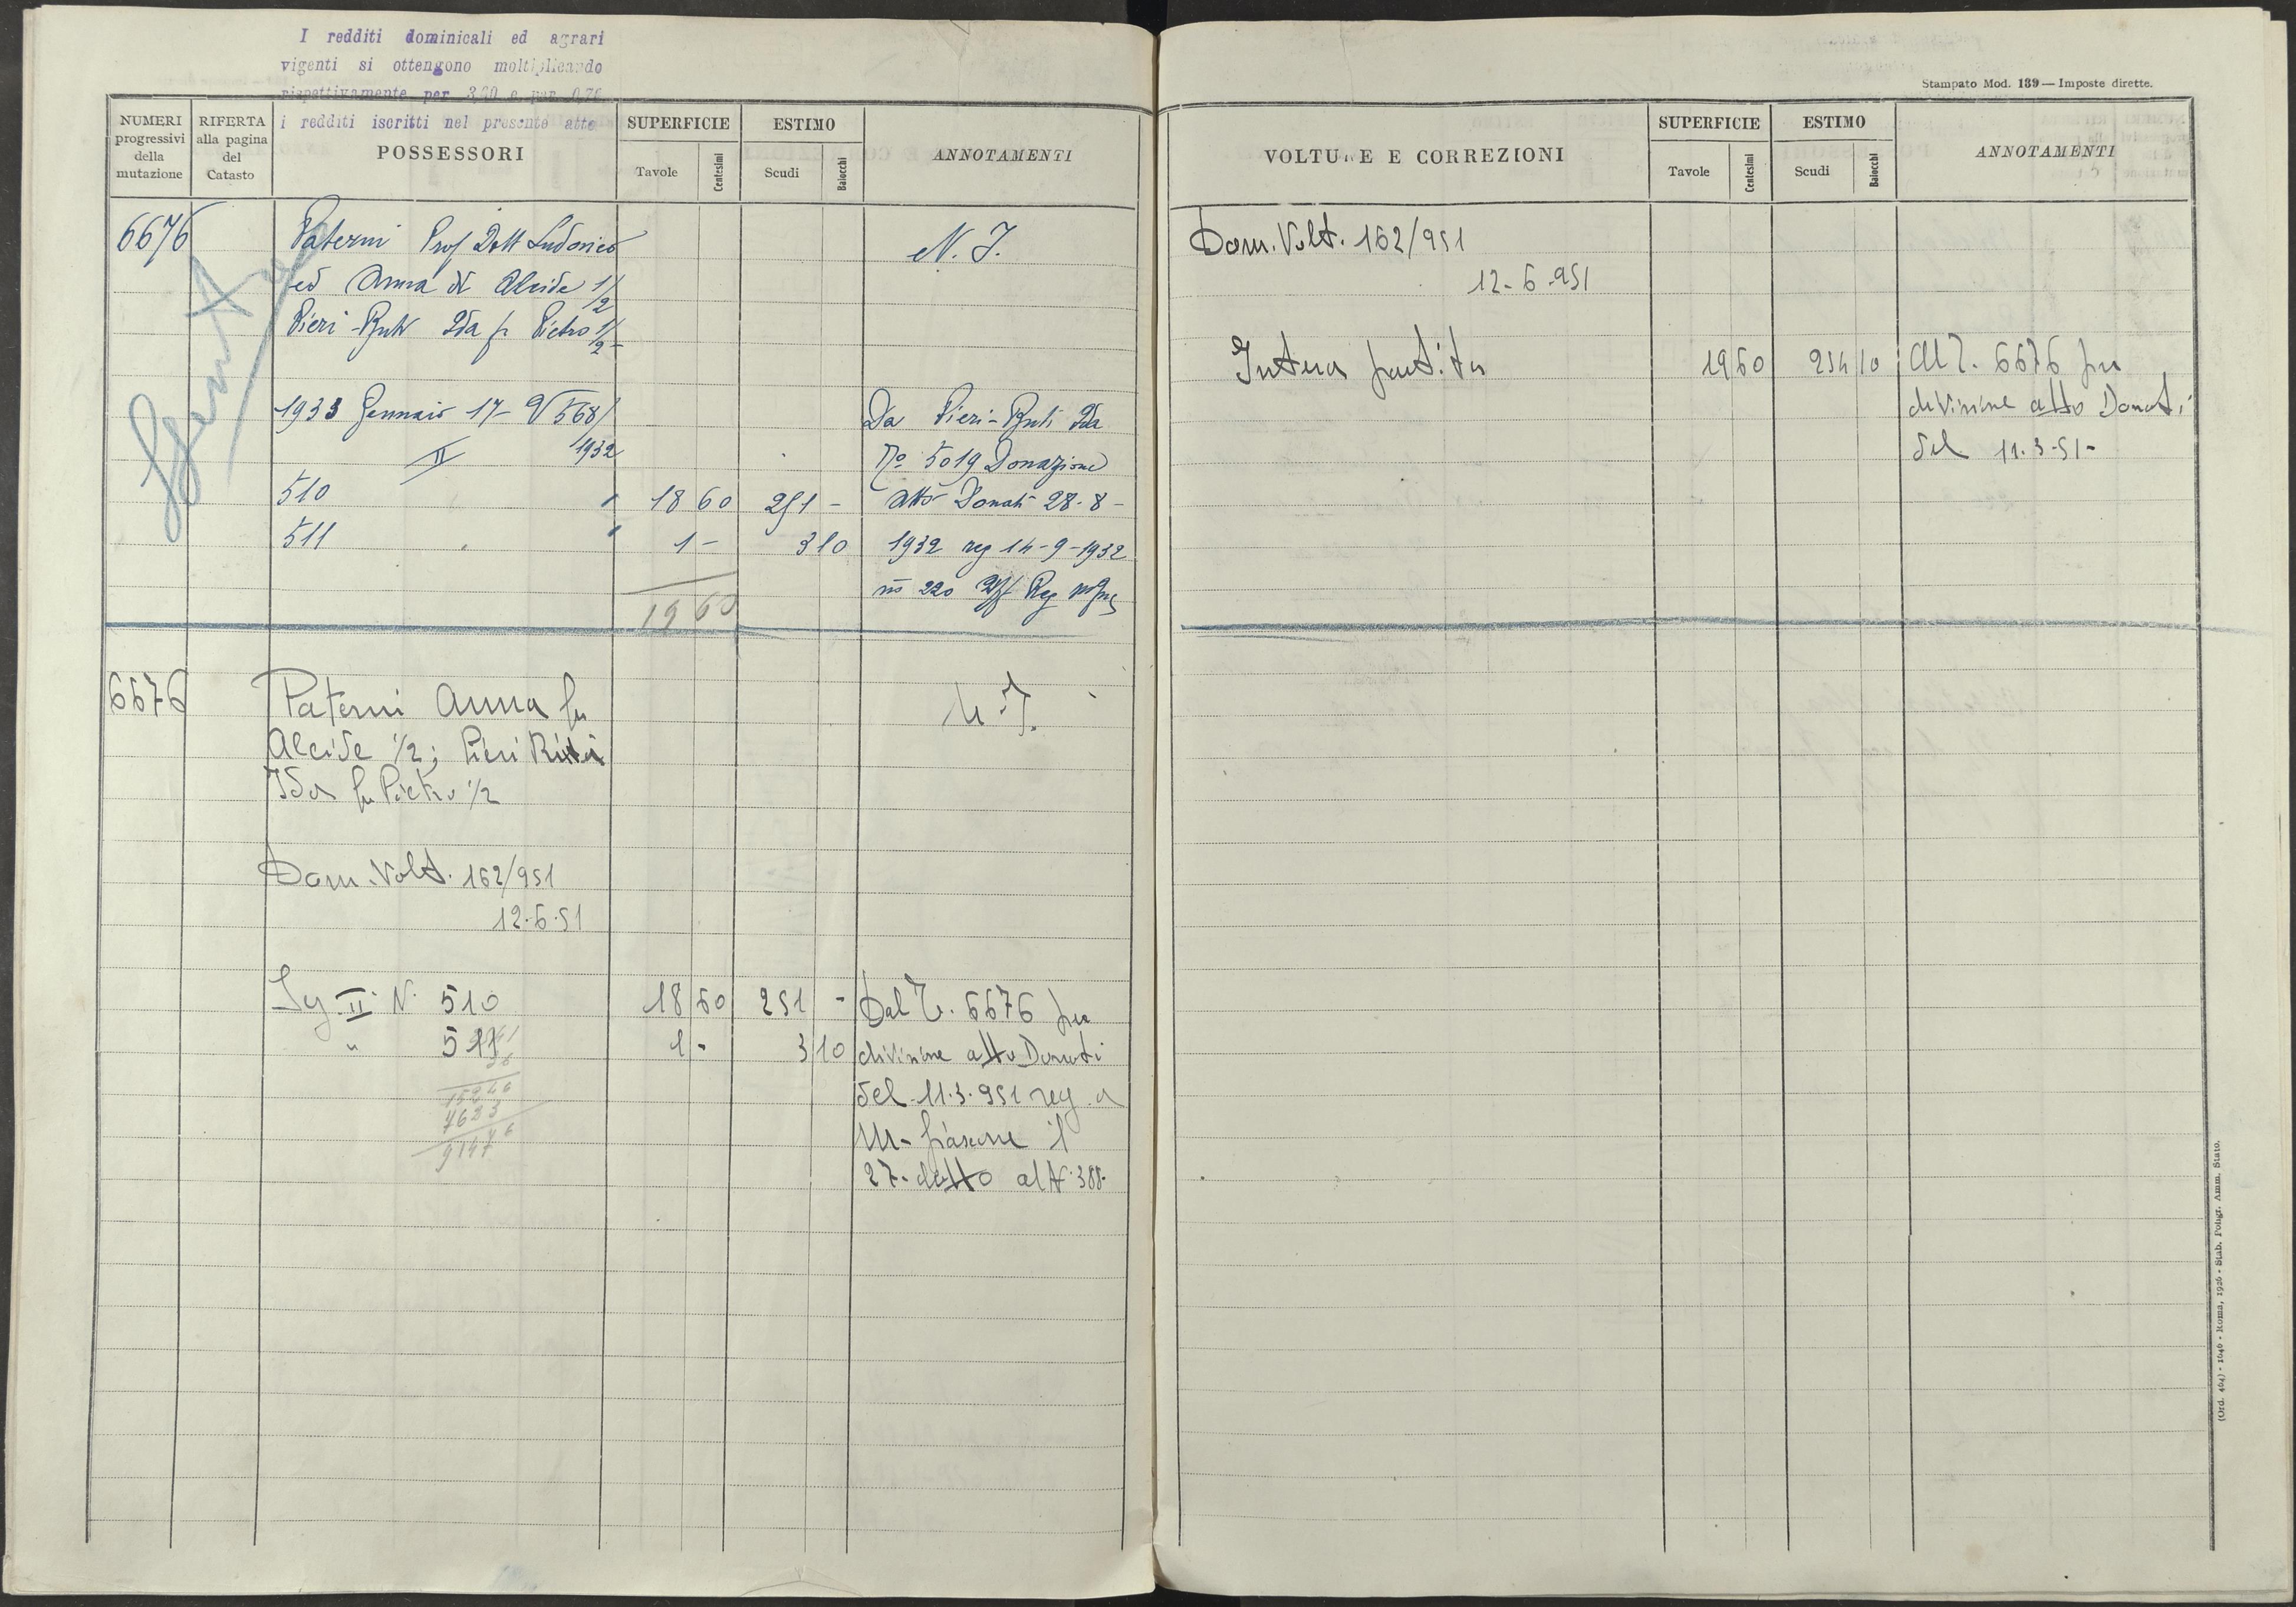 I redditi dominicali ed agrari
vigenti si ottengono moltiplicando
rispettivamente per 3,20 e per 0,76
i redditi iscritti nel presente atto
NUMERI progressivi della mutazione
RIFERTA alla pagina del Catasto
POSSESSORI
SUPERFICIE
Tavole
Centesimi
ESTIMO
Scudi
Baiocchi
ANNOTAMENTI
6676
Paterni Prof Dott Ludovico
ed Anna di Alcide 1/2
Pieri-Buti Ida fu Pietro 1/2
N. I.
1933 Gennaio 17- V 568/1932
II
510 " 18 60 251 -
511 " 1 - 3 10
19 60
Da Pieri-Buti Ida
No 5019 Donazione
atto Donati 28-8-
1932 reg 14-9-1932
no 220 Uff Reg
6676
Paterni Anna fu
Alcide 1/2; Pieri
Ida fu Pietro 1/2
N. I.
Dom. Volt. 162/951
12.6.51
II N. 510 18 60 251 -
" 511 1 - 3 10
15246
7623
Dal N. 6676 per
divisione atto Donati
del 11.3.951 reg. a
il
27. detto al N. 388.
Stampato Mod. 189 — Imposte dirette.
VOLTURE E CORREZIONI
SUPERFICIE
Tavole
Centesimi
ESTIMO
Scudi
Baiocchi
ANNOTAMENTI
Dom. Volt. 162/951
12-6-951
Intera partita 19 60 254 10
Al N. 6676 per
divisione atto Donati
del 11.3-51-
(Ord. 464) - 1646 - Roma, 1926 - Stab. Poligr. Amm. Stato.